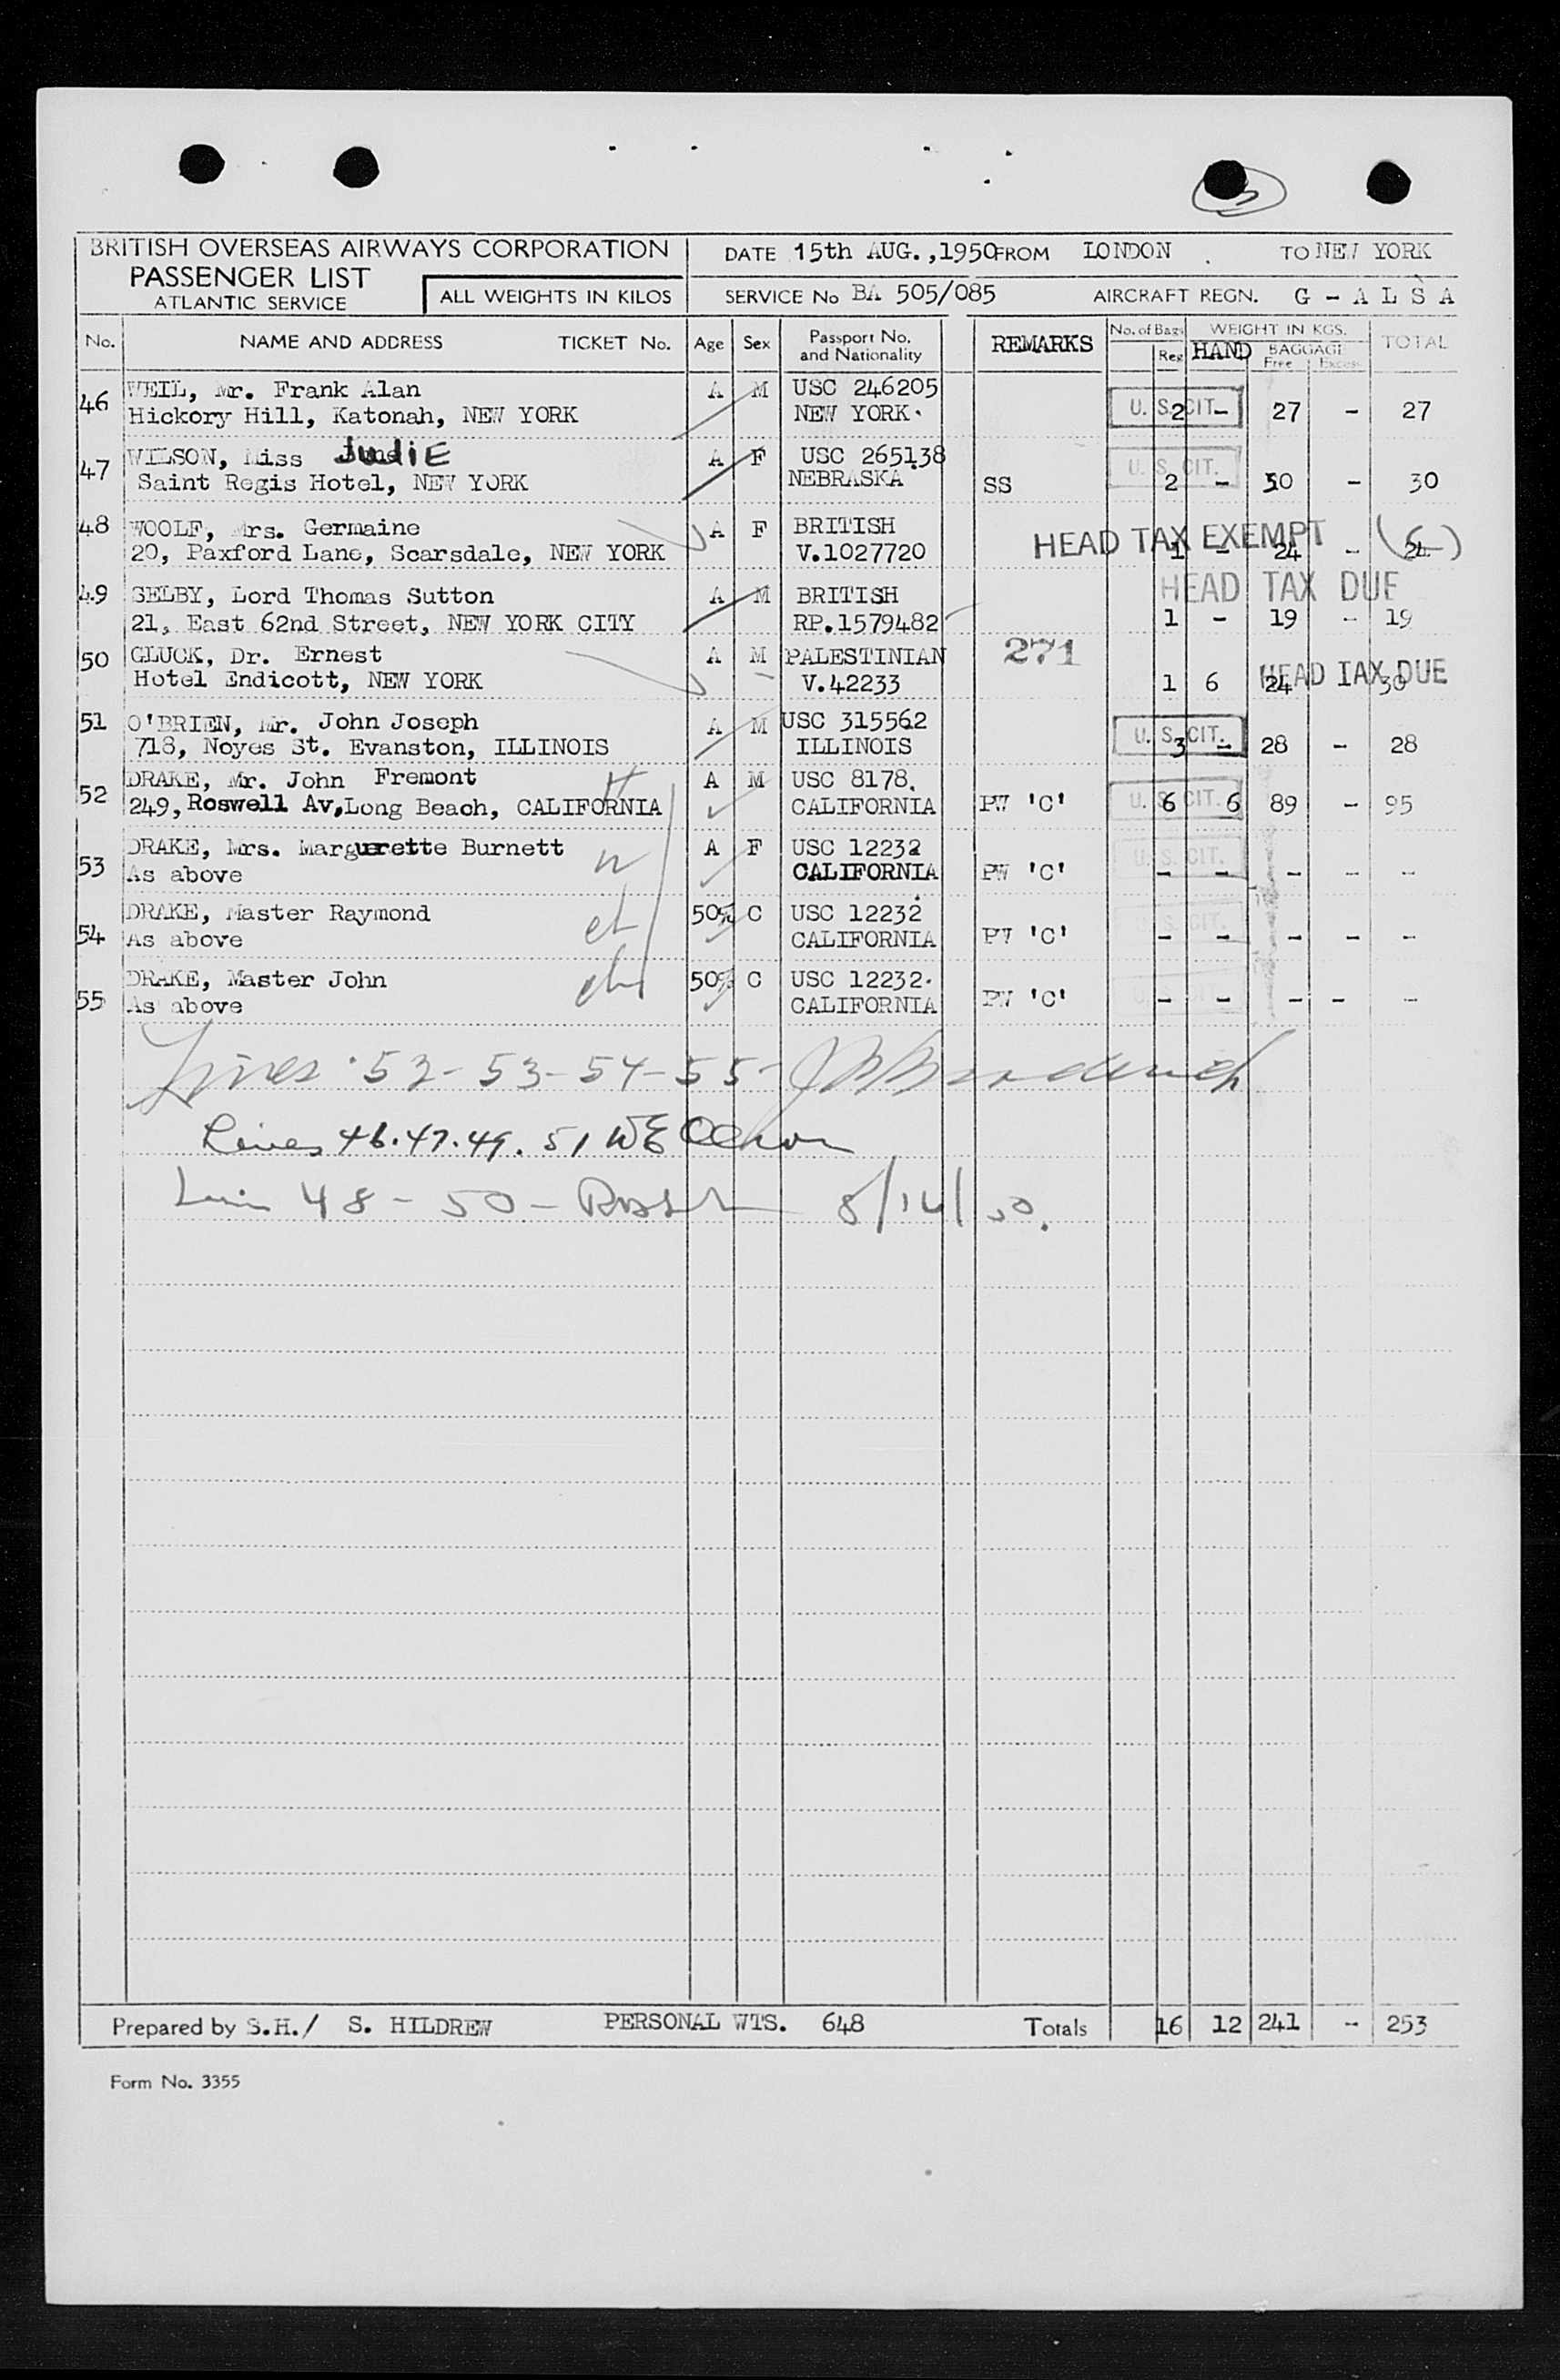 BRITISH OVERSEAS AIRWAYS CORPORATION DATE 15th AUG.,1950 FROM LONDON TO NEW YORK
PASSENGER LIST
ATLANTIC SERVICE ALL WEIGHTS IN KILOS SERVICE No BA 505/085 AIRCRAFT REGN. G - A L S A
No. NAME AND ADDRESS TICKET No. Age Sex Passport No. and Nationality REMARKS No. of Bags Reg WEIGHT IN KGS. HAND BAGGAGE Free Excess TOTAL
46 WEIL, Mr. Frank Alan A M USC 246205
Hickory Hill, Katonah, NEW YORK NEW YORK. U. S. CIT. 2 - 27 - 27
47 WILSON, Miss JudiE A F USC 265138
Saint Regis Hotel, NEW YORK NEBRASKA SS U. S. CIT. 2 - 30 - 30
48 WOOLF, Mrs. Germaine A F BRITISH
20, Paxford Lane, Scarsdale, NEW YORK V.1027720 HEAD TAX EXEMPT 1 - 24 - 24
49 SELBY, Lord Thomas Sutton A M BRITISH HEAD TAX DUE
21, East 62nd Street, NEW YORK CITY RP.1579482 1 - 19 - 19
50 GLUCK, Dr. Ernest A M PALESTINIAN 271
Hotel Endicott, NEW YORK V.42233 1 6 24 HEAD TAX DUE 30
51 O'BRIEN, Mr. John Joseph A M USC 315562
718, Noyes St. Evanston, ILLINOIS ILLINOIS U. S. CIT. 3 - 28 - 28
52 DRAKE, Mr. John Fremont A M USC 8178.
249, Roswell Av, Long Beach, CALIFORNIA CALIFORNIA PW 'C' U. S. CIT. 6 6 89 - 95
53 DRAKE, Mrs. Marguerette Burnett A F USC 12232
As above CALIFORNIA PW 'C' U. S. CIT. - - - - -
54 DRAKE, Master Raymond 50% C USC 12232
As above CALIFORNIA PW 'C' U. S. CIT. - - - - -
55 DRAKE, Master John 50% C USC 12232.
As above CALIFORNIA PW 'C' U. S. CIT. - - - - -
Lines 52-53-54-55-
Lines 46.47.49.51 WE
48-50-
Prepared by S.H./ S. HILDREW PERSONAL WTS. 648 Totals 16 12 241 - 253
Form No. 3355